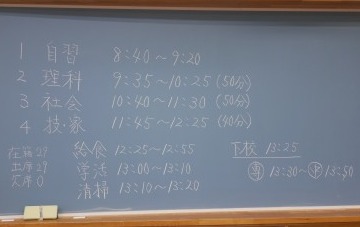 1 自習 8:40～9:20
2 理科 9:35～10:25(50分)
3 社会 10:40～11:30(50分)
4 技・家 11:45～12:25(40分)
在籍29
出席29
欠席0
給食 12:25～12:55
学活 13:00～13:10
清掃 13:10～13:20
下校 13:25
専 13:30～申 13:50